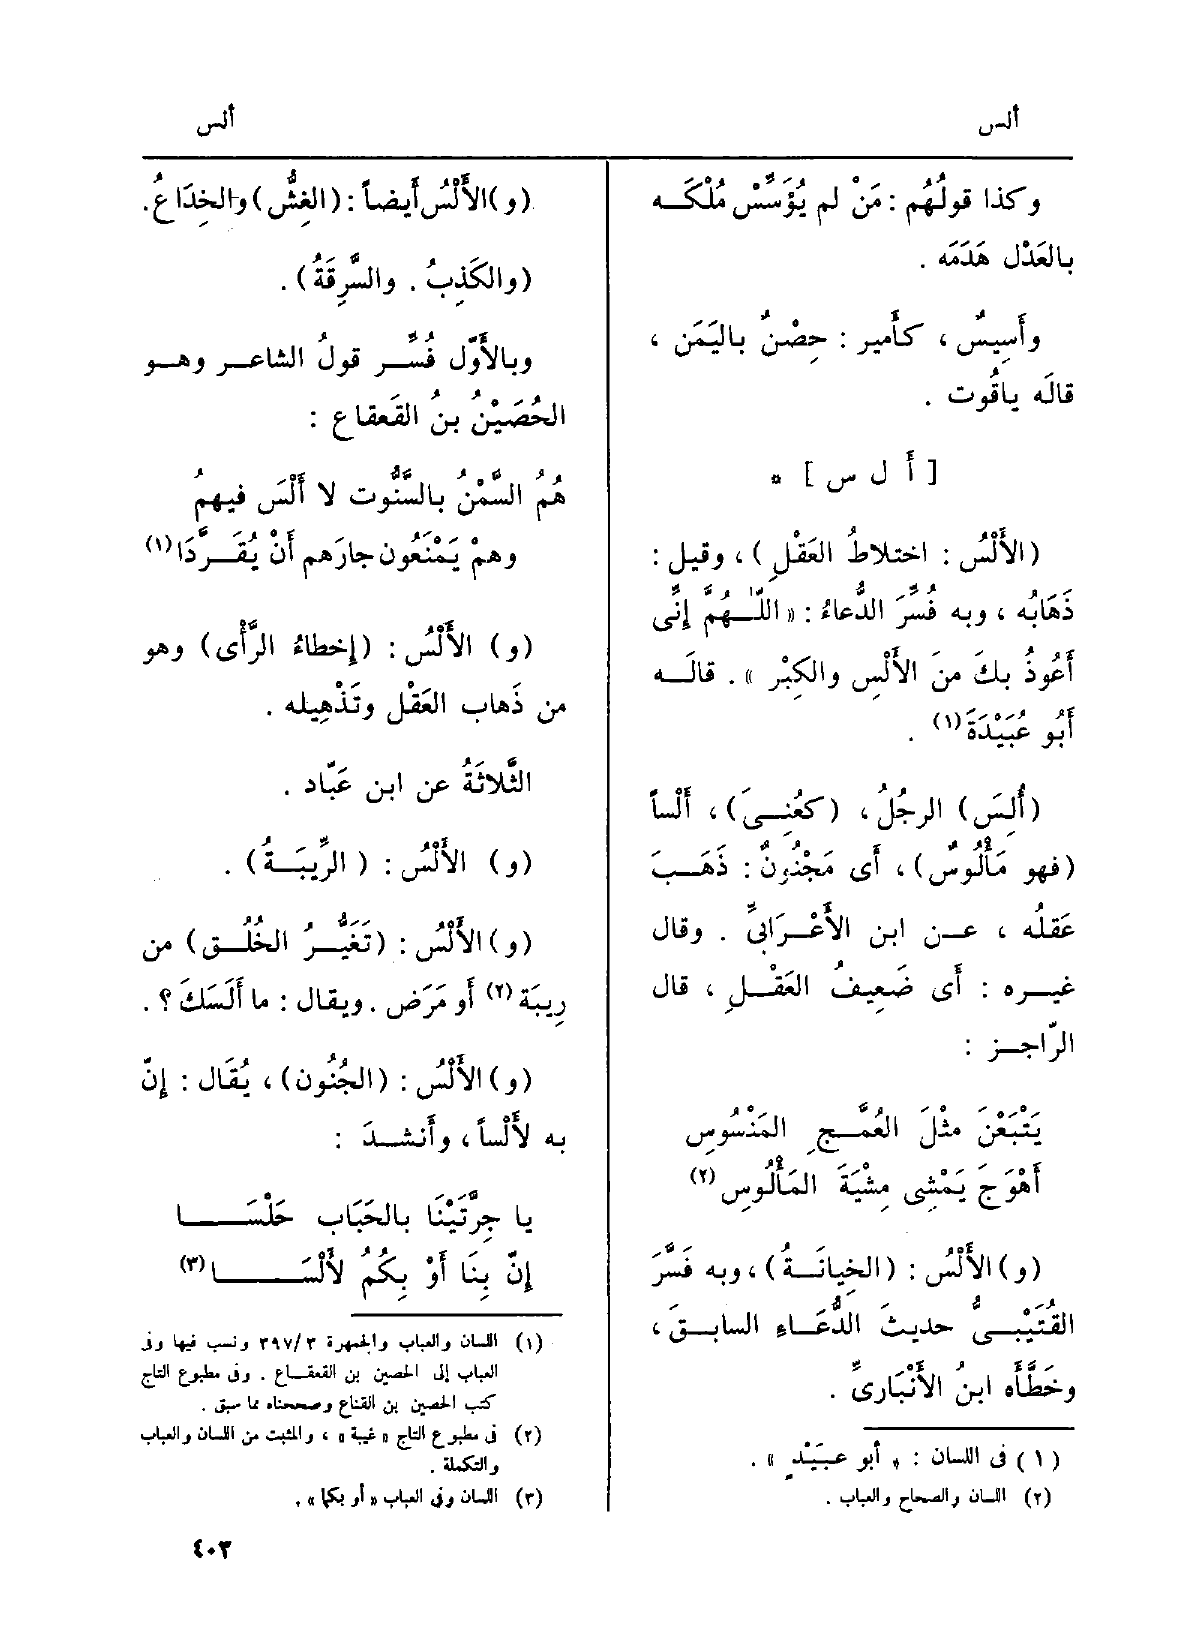 ألس
ألس
وكذا قولُهُم : مَنْ لم يُؤَسِّسْ مُلْكَـه
بالعَدْل هَدَمَه .
وأَسِيسٌ ، كأَمير : حِصْنٌ باليَمَن ،
قالَه ياقُوت .
[ أ ل س ] *
(الأَلْسُ : اختلاطُ العَقْلِ) ، وقيل :
ذَهَابُه ، وبه فُسِّرَ الدُّعاءُ : « اللّٰـهُمَّ إِنِّى
أَعُوذُ بكَ منَ الأَلْسِ والكِبْر » . قالَـه
أَبُو عُبَيْدَةَ(١) .
(أُلِسَ) الرجُلُ ، (كعُنِـىَ) ، أَلْساً
(فهو مَأْلُوسٌ) ، أَى مَجْنُونٌ : ذَهَـبَ
عَقلُه ، عـن ابن الأَعْـرَابىِّ . وقال
غيـره : أَى ضَعِيفُ العَقْـلِ ، قال
الرّاجـز :
يَتْبَعْنَ مثْلَ العُمَّـجِ المَنْسُوسِ
أَهْوَجَ يَمْشِى مِشْيَةَ المَأْلُوسِ(٢)
(و) الأَلْسُ : (الخِيانَـةُ) ، وبه فَسَّرَ
القُتَيْبـىُّ حديثَ الدُّعَـاءِ السابـقَ ،
وخَطَّأَه ابنُ الأَنْبَارىِّ .
(١) فى اللسان : « أبو عبَيْدٍ » .
(٢) اللسان والصحاح والعباب .
(و) الأَلْسُ أَيضاً : (الغِشُّ) والخِدَاعُ .
(والكَذِبُ . والسَّرِقَةُ) .
وبالأَوَّل فُسِّـر قولُ الشاعـر وهـو
الحُصَيْنُ بنُ القَعقاع :
هُمُ السَّمْنُ بالسَّنُّوت لا أَلْسَ فيهمُ
وهمْ يَمْنَعُون جارَهم أَنْ يُقَـرَّدَا(١)
(و) الأَلْسُ : (إخطاءُ الرَّأْى) وهو
من ذَهاب العَقْل وتَذْهِيله .
الثَّلاثَةُ عن ابن عَبّاد .
(و) الأَلْسُ : (الرِّيبَـةُ) .
(و) الأَلْسُ : (تَغَيُّـرُ الخُلُـق) من
رِيبَة(٢) أَو مَرَض . ويقال : ما أَلَسَكَ ؟ .
(و) الأَلْسُ : (الجُنُون) ، يُقَال : إِنّ
به لأَلْساً ، وأَنشـدَ :
يا جِرَّتَيْنَا بالحَبَاب حَلْسَـا
إِنّ بِنَا أَوْ بِكُمُ لأَلْسَـا(٣)
(١) اللسان والعباب والجمهرة ٣٩٧/٣ ونسب فيها وفى
العباب إلى الحصين بن القعقـاع . وفى مطبوع التاج
كتب الحصين بن القناع وصححناه مما سبق .
(٢) فى مطبوع التاج « غيبة » ، والمثبت من اللسان والعباب
والتكملة .
(٣) اللسان وفى العباب « أو بكما » .
٤٠٣